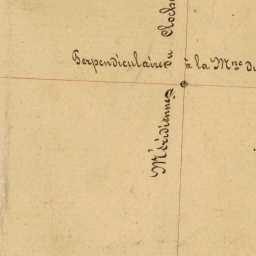 Perpendiculaire à la M.ne d
Méridienne du Cloch